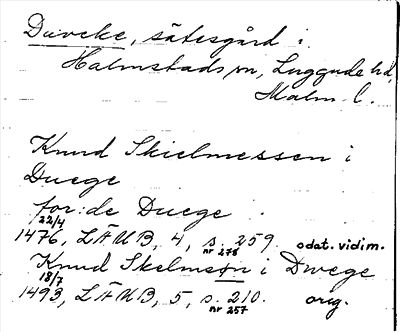 Duveke, sätesgård i
Halmstads sn, Luggude hd,
Malm. l.
Knud Skielmessen i
Duege
for:de Duege
22/4
1476, LÄUB, 4, s. 259. odat. vidim.
nr 278
Knud Skelmsøn i Dwege
18/7
1493, LÄUB, 5, s. 210. orig.
nr 257